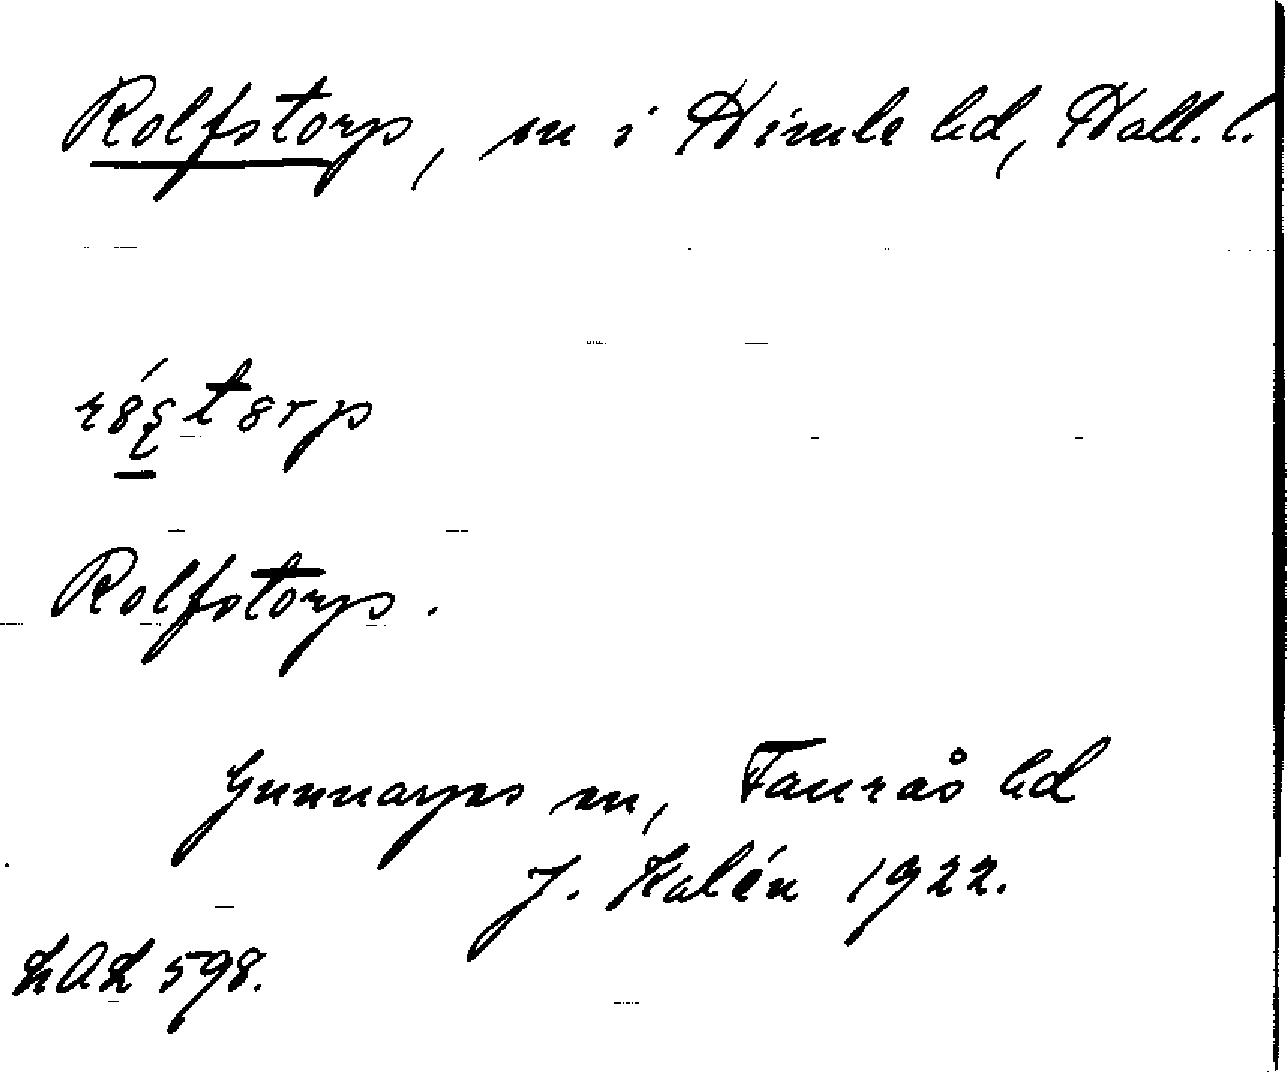 Rolfstorp, sn i Himle hd, Hall. l.
Rolfstorp.
Gunnarps sn, Faurås hd
J. Kalén 1922.
LAL 598.